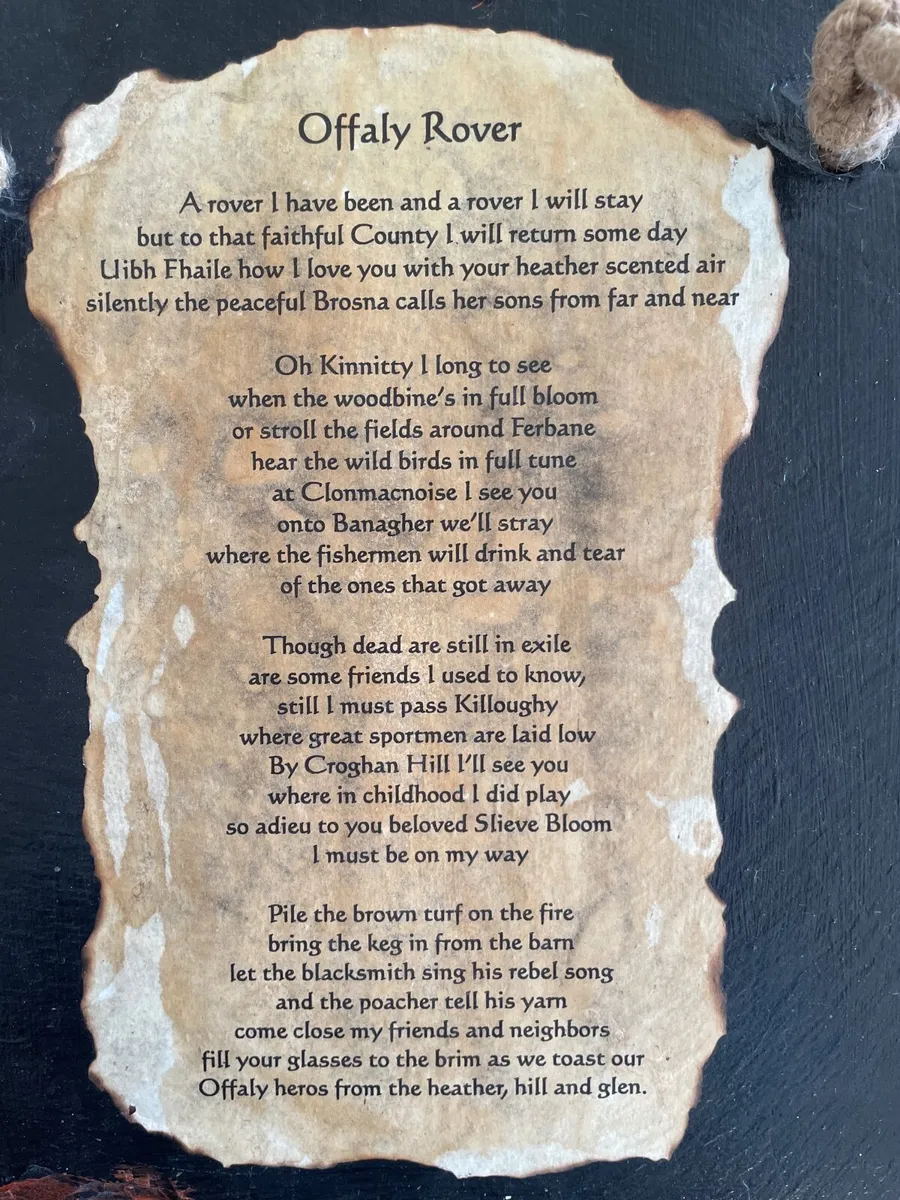 Offaly Rover
A rover I have been and a rover I will stay
but to that faithful County I will return some day
Uibh Fhaile how I love you with your heather scented air
silently the peaceful Brosna calls her sons from far and near
Oh Kinnitty I long to see
when the woodbine's in full bloom
or stroll the fields around Ferbane
hear the wild birds in full tune
at Clonmacnoise I see you
onto Banagher we'll stray
where the fishermen will drink and tear
of the ones that got away
Though dead are still in exile
are some friends I used to know,
still I must pass Killoughy
where great sportmen are laid low
By Croghan Hill I'll see you
where in childhood I did play
so adieu to you beloved Slieve Bloom
I must be on my way
Pile the brown turf on the fire
bring the keg in from the barn
let the blacksmith sing his rebel song
and the poacher tell his yarn
come close my friends and neighbors
fill your glasses to the brim as we toast our
Offaly heros from the heather, hill and glen.